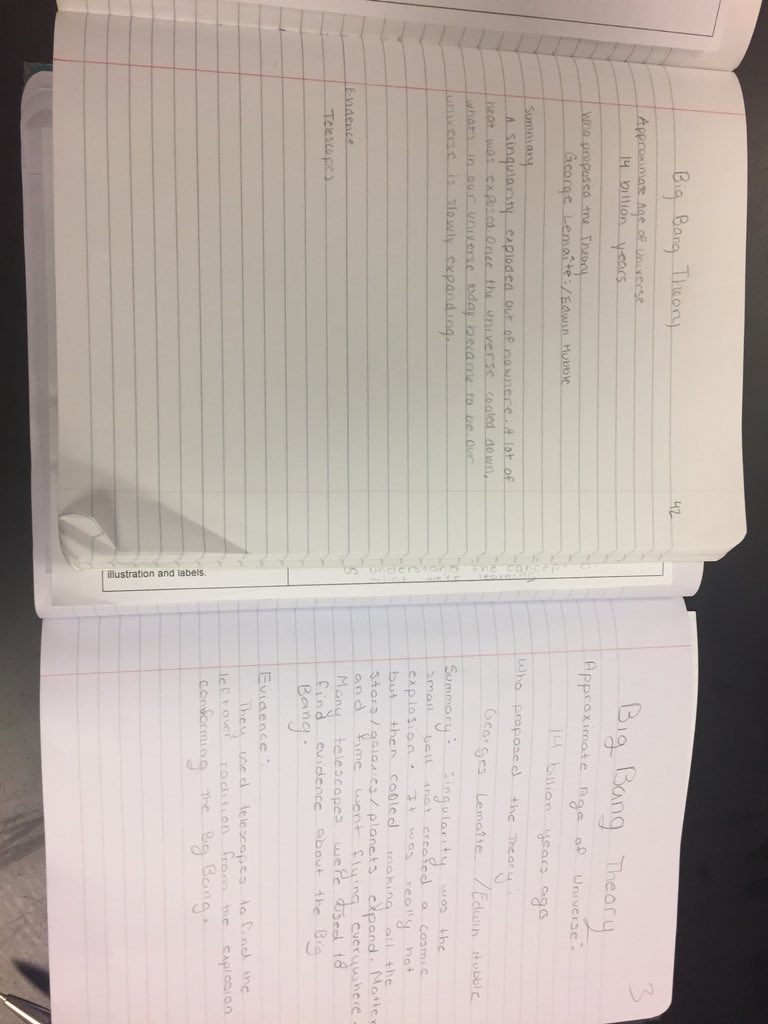 Big Bang Theory
42
Approximate Age of Universe
14 billion years
Who proposed the Theory
George Lemaîte:/Edwin Hubble
Summary
A singularity exploded out of nowhere. A lot of
heat was exposed. Once the universe cooled down,
what's in our universe today became to be. Our
universe is slowly expanding.
Evidence
Telescopes
illustration and labels.
us understand the concept
what we're learning
Big Bang Theory
3
Approximate Age of Universe:
14 billion years ago
Who proposed the Theory:
Georges Lemaîte /Edwin Hubble
Summary: Singularity was the
small ball that created a cosmic
explosion. It was really hot
but then cooled making all the
stars/galaxies/planets expand. Matter
and time went flying everywhere.
Many telescopes were used to
find evidence about the Big
Bang.
Evidence:
They used telescopes to find the
left over radition from the explosion
conforming the Big Bang.